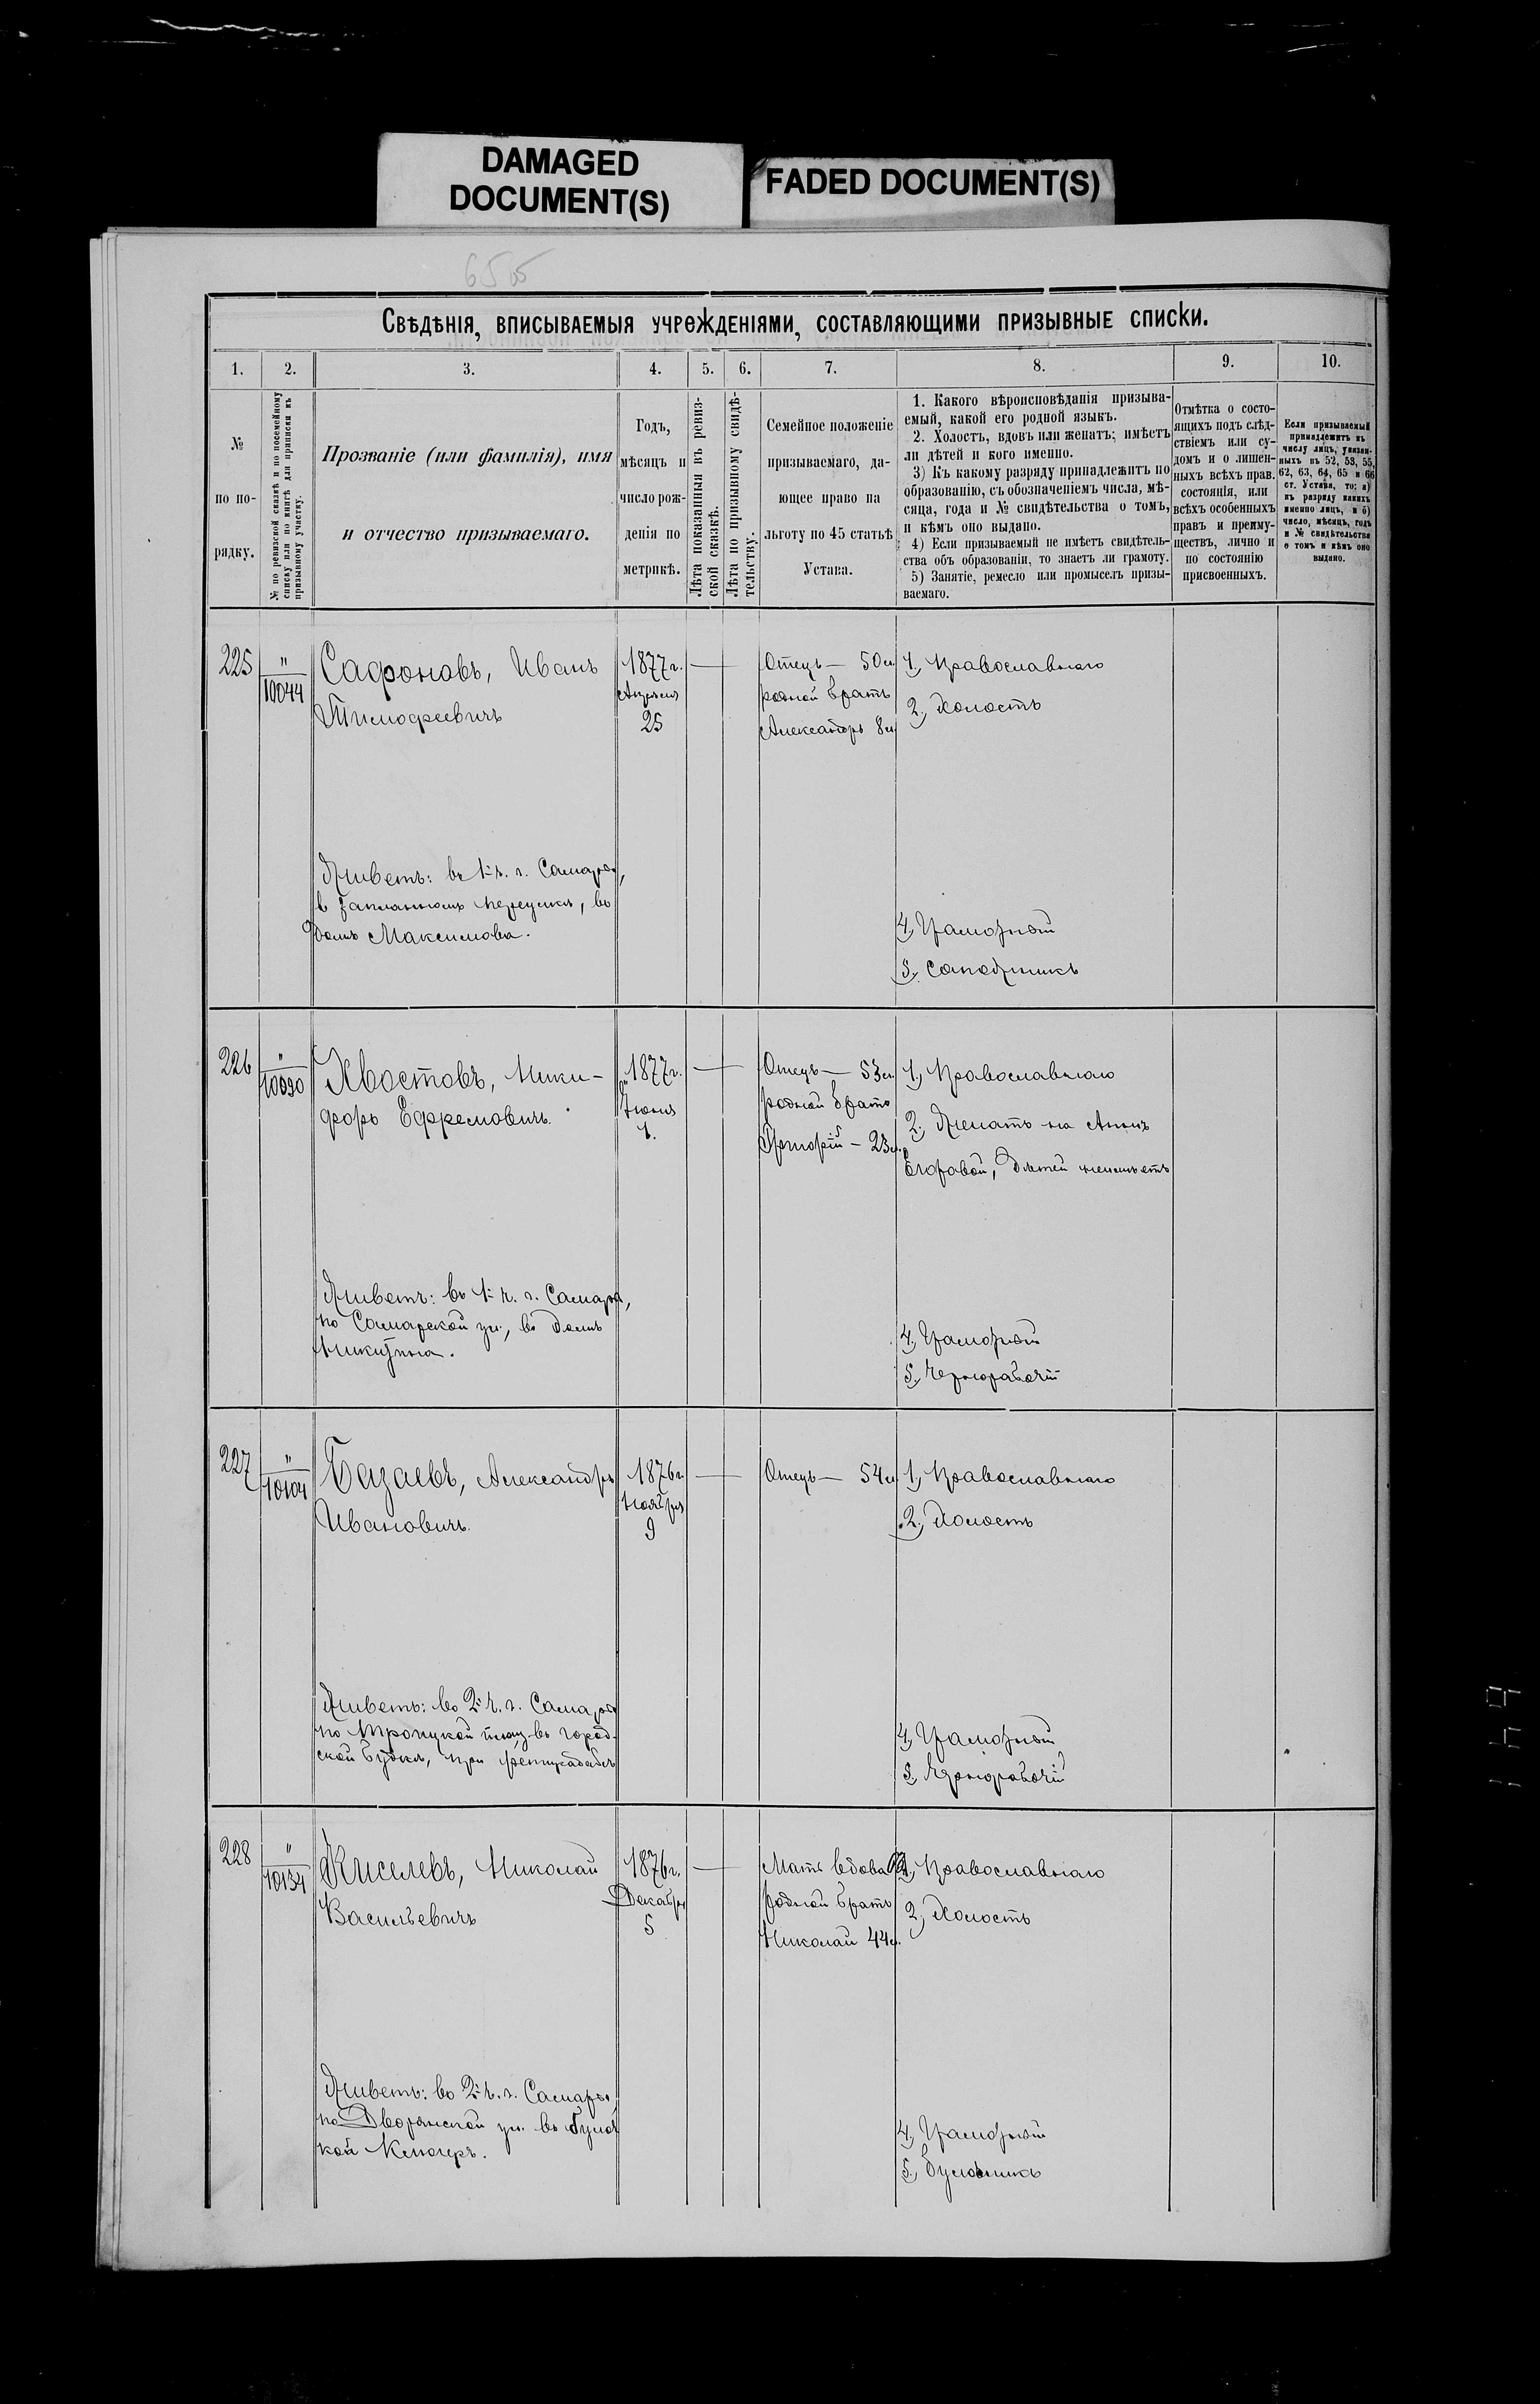 DAMAGED
DOCUMENT(S)
FADED DOCUMENT(S)
Свѣдѣнія, вписываемыя учрежденіями, составляющими призывные списки.
1. 2. 3. 4. 5. 6. 7. 8. 9. 10.
№
по по-
рядку.
№ по ревизской сказкѣ и по посемейному
списку или по книгѣ для приписки къ
призывному участку.
Прозваніе (или фамилія), имя
и отчество призываемаго.
Годъ,
мѣсяцъ и
число рож-
денія по
метрикѣ.
Лѣта показанныя въ ревиз-
ской сказкѣ.
Лѣта по призывному свидѣ-
тельству.
Семейное положеніе
призываемаго, да-
ющее право на
льготу по 45 статьѣ
Устава.
1. Какого вѣроисповѣданія призыва-
емый, какой его родной языкъ.
2. Холостъ, вдовъ или женатъ; имѣетъ
ли дѣтей и кого именно.
3) Къ какому разряду принадлежитъ по
образованію, съ обозначеніемъ числа, мѣ-
сяца, года и № свидѣтельства о томъ,
и кѣмъ оно выдано.
4) Если призываемый не имѣетъ свидѣтель-
ства объ образованіи, то знаетъ ли грамоту.
5) Занятіе, ремесло или промыселъ призы-
ваемаго.
Отмѣтка о состо-
ящихъ подъ слѣд-
ствіемъ или су-
домъ и о лишен-
ныхъ всѣхъ правъ
состоянія, или
всѣхъ особенныхъ
правъ и преиму-
ществъ, лично и
по состоянію
присвоенныхъ.
Если призываемый
принадлежитъ къ
числу лицъ, указан-
ныхъ въ 52, 53, 55,
62, 63, 64, 65 и 66
ст. Устава, то: а)
къ разряду какихъ
именно лицъ, и б)
число, мѣсяцъ, годъ
и № свидѣтельства
о томъ и кѣмъ оно
выдано.
225
"
10044
Сафоновъ, Иванъ
Тимофеевичъ
1877 г.
Апреля
25
Отецъ — 50 л.
родной братъ
Александръ 8 л.
1, Православнаго
2, Холостъ
Живетъ: въ 1 ч. г. Самары,
в переулкѣ, въ
домѣ Максимова.
4, Грамотный
5, Сапожникъ
226
"
10090
Хвостовъ, Ники-
форъ Ефремовичъ.
1877 г.
Іюня
1.
Отецъ — 53 л.
родной братъ
Григорій — 23 л.
1, Православнаго
2, Женатъ на Аннѣ
Егоровой, дѣтей неимѣетъ
Живетъ: въ 1 ч. г. Самары,
по Самарской ул., въ домѣ
Никитина.
4, Грамотный
5, Чернорабочій
227
"
10104
Базаевъ, Александръ
Ивановичъ.
1876 г.
Ноября
9
Отецъ — 54 л.
1, Православнаго
2, Холостъ
Живетъ: во 2 ч. г. Самары
по Троицкой площ. въ город-
ской будкѣ, при
4, Грамотный
5, Чернорабочій
228
"
10134
Киселевъ, Николай
Васильевичъ
1876 г.
Декабря
5
Мать вдова
родной братъ
Николай 44 л.
1, Православнаго
2, Холостъ
Живетъ: во 2 ч. г. Самары,
по Дворянской ул. въ
кой
4, Грамотный
5, Булочникъ